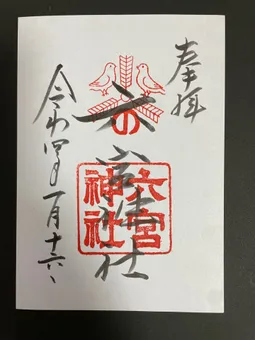 奉拝
六宮神社
六宮
神社
令和四年一月十六日